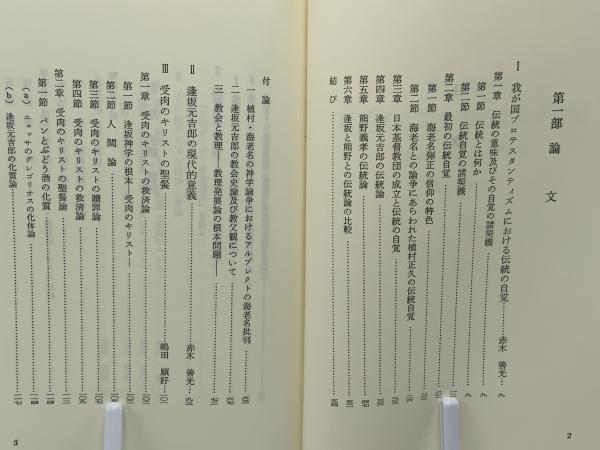 第一部 論文
Ⅰ 我が国プロテスタンティズムにおける伝統の自覚 赤木善光
第一章 伝統の意味及びその自覚の諸契機
第一節 伝統とは何か
第二節 伝統自覚の諸契機
第二章 最初の伝統自覚
第一節 海老名弾正の信仰の特色
第二節 海老名との論争にあらわれた植村正久の伝統自覚
第三章 日本基督教団の成立と伝統の自覚
第四章 逢坂元吉郎の伝統論
第五章 熊野義孝の伝統論
第六章 逢坂と熊野との伝統論の比較
結び
2
付論
一 植村・海老名の神学論争におけるアルブレクトの海老名批判
二 逢坂元吉郎の教会史論及び教父観について
三 教会と教理——教理発展論の根本問題——
Ⅱ 逢坂元吉郎の現代的意義 赤木善光
Ⅲ 受肉のキリストの聖餐 嶋田順好
第一章 受肉のキリストの救済論
第一節 逢坂神学の根本—受肉のキリスト—
第二節 人間論
第三節 受肉のキリストの贖罪論
第四節 受肉のキリストの救済論
第二章 受肉のキリストの聖餐論
第一節 パンとぶどう酒の化質
(a) ニュッサのグレゴリオスの化体論
(b) 逢坂元吉郎の化質論
3